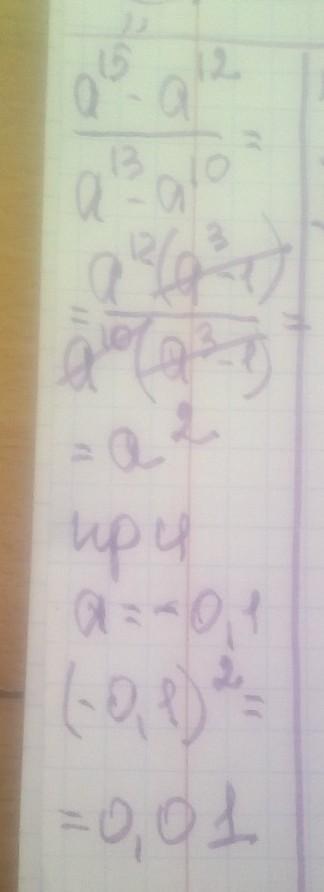 a^15 - a^12
a^13 - a^10 =
= a^12(a^3-1)
a^10(a^3-1) =
= a^2
при
a = -0,1
(-0,1)^2 =
= 0,01